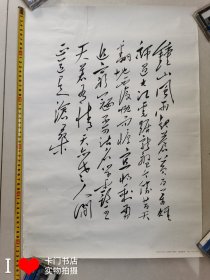 鍾山風雨起蒼黃百万雄
師過大江虎踞龍盤今勝昔天
翻地覆慨而慷宜將剩勇
追窮寇不可沽名學霸王
天若有情天亦老人間
正道是滄桑
卡门书店